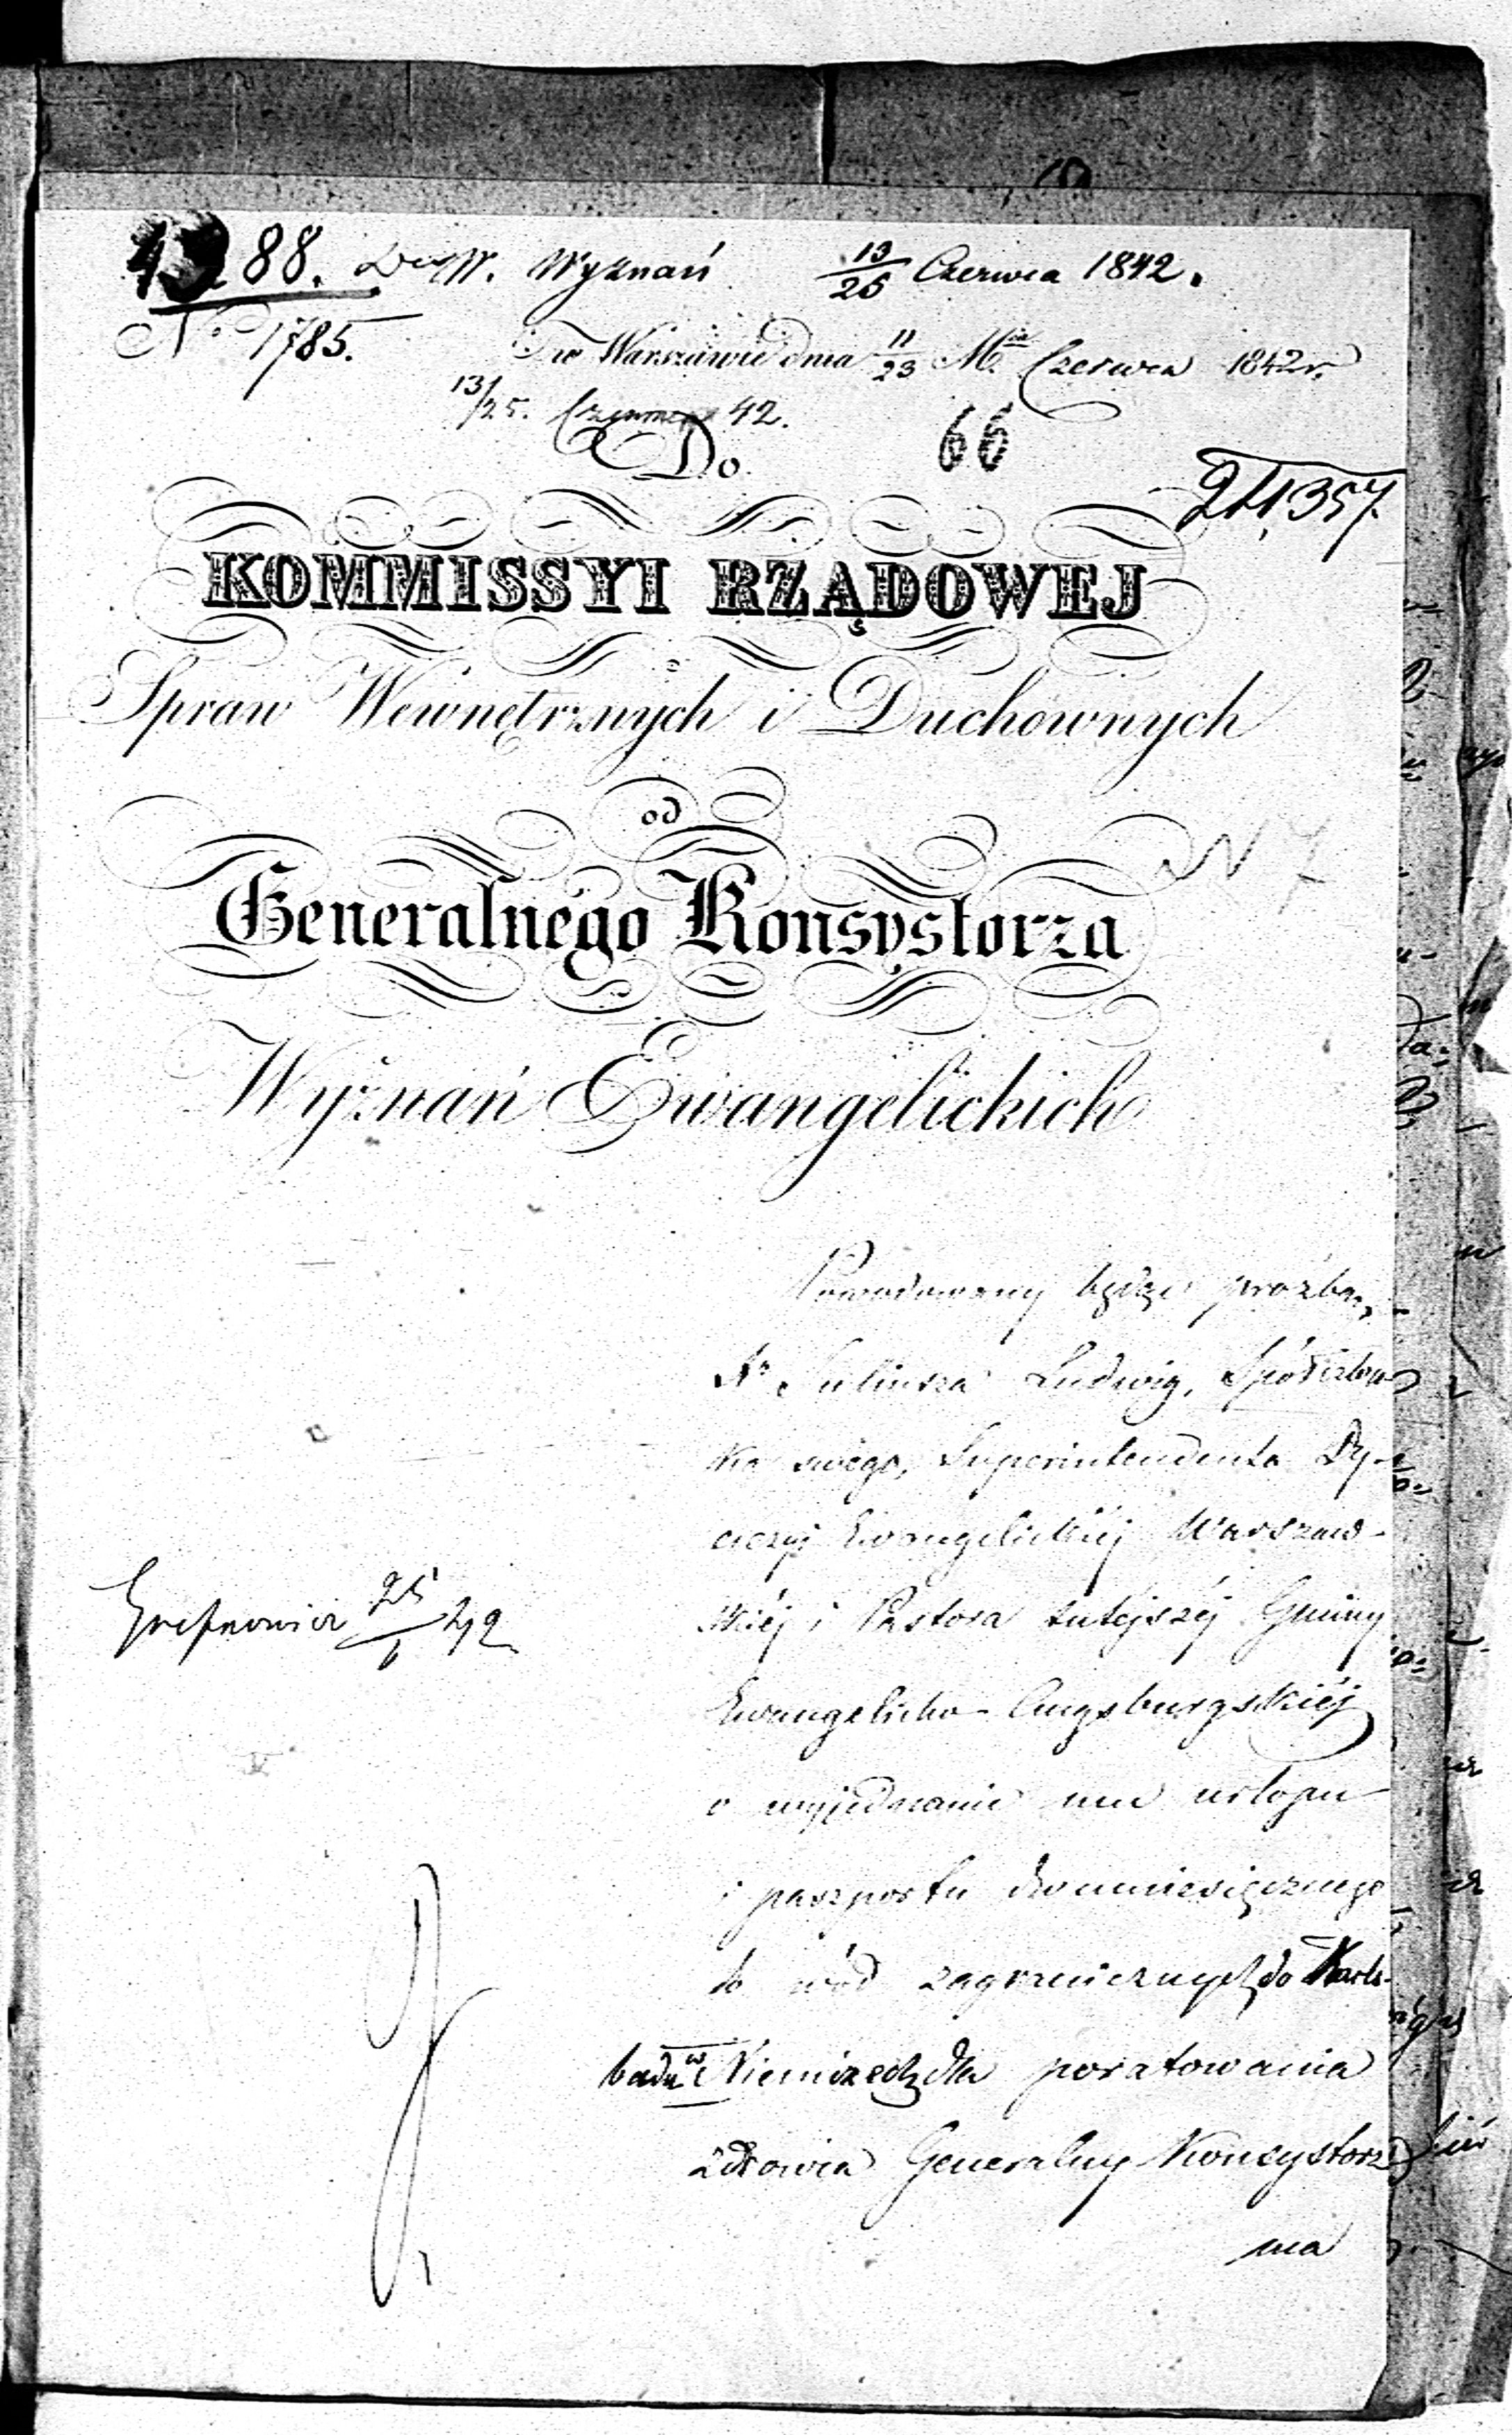 88. Wyznań 13/25 Czerwca 1842.
No 1785. w Warszawie dnia 11/23 M.ca Czerwca 1842 r.
13/25. Czerwca 42.
Do
66
24,357.
KOMMISSYI RZĄDOWEJ
Spraw Wewnętrznych i Duchownych
od
N 7
Generalnego Konsystorza
Wyznań Ewangelickich
Powodowany będąc proźbą
Xa Juliusza Ludwig, Spółczłon-
ka swego, Superintendenta Dy-
ecezyi Ewangelickiéj Warszaw-
skiéj i Pastora tutéjszéj Gminy
25/6 42
Ewangelicko-Augsburgskiéj
o wyjednanie mu urlopu
i paszportu dwumiesięcznego
do wód zagranicznych do Karls-
badu w Niemczech dla poratowania
zdrowia Generalny Konsystorz
ma